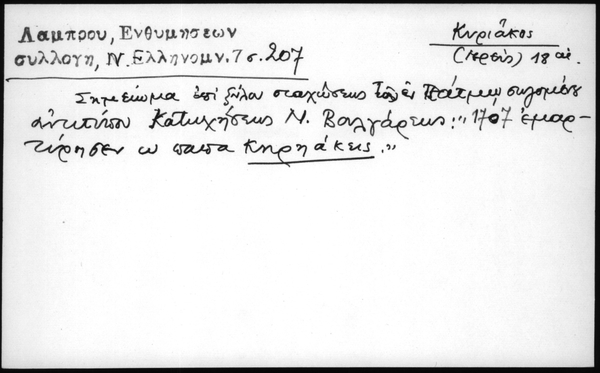 Λαμπρου, Ενθυμησεων
συλλογη, Ν. Ελληνομν. 7 σ. 207
Κυριᾶκος
(ἱερεὺς) 18 αἰ.
Σημείωμα ἐπὶ ξύλου σταχώσεως τοῦ ἐν Πάτμῳ σῳζομένου
ἀντιτύπου Κατηχήσεως Ν. Βουλγάρεως: "1707 ἐμαρ-
τύρησεν ω παπα Κηρηάκεις."